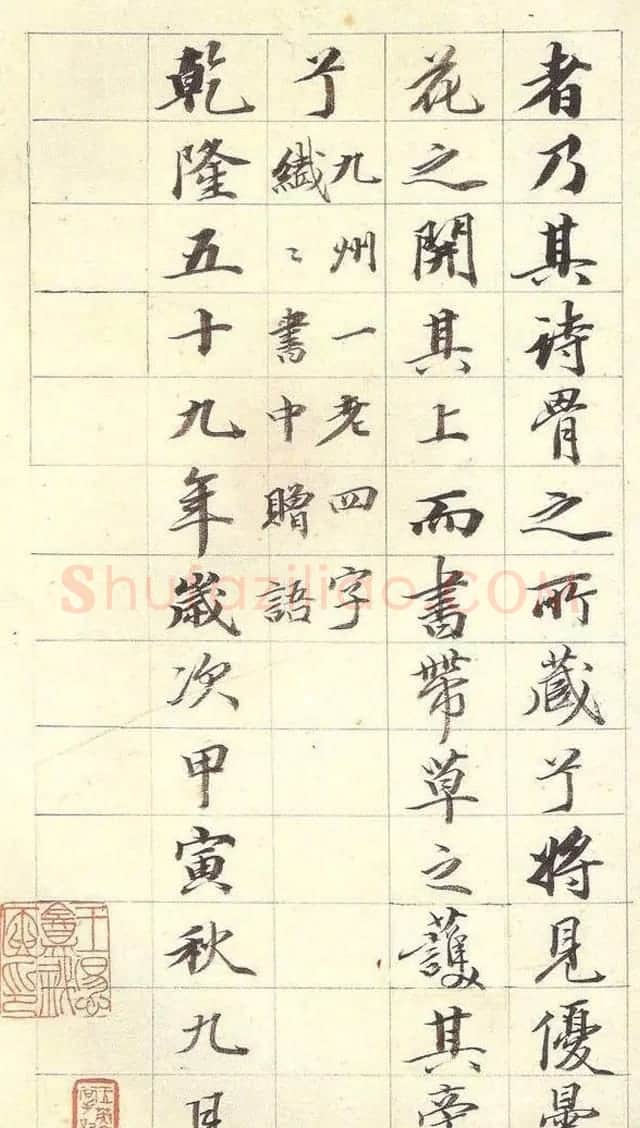 者乃其诗骨之所藏兮将見優曇
花之開其上而書帶草之護其旁
兮九州一老四字
纖〻書中贈語
乾隆五十九年歲次甲寅秋九月
Shufaziliao.COM